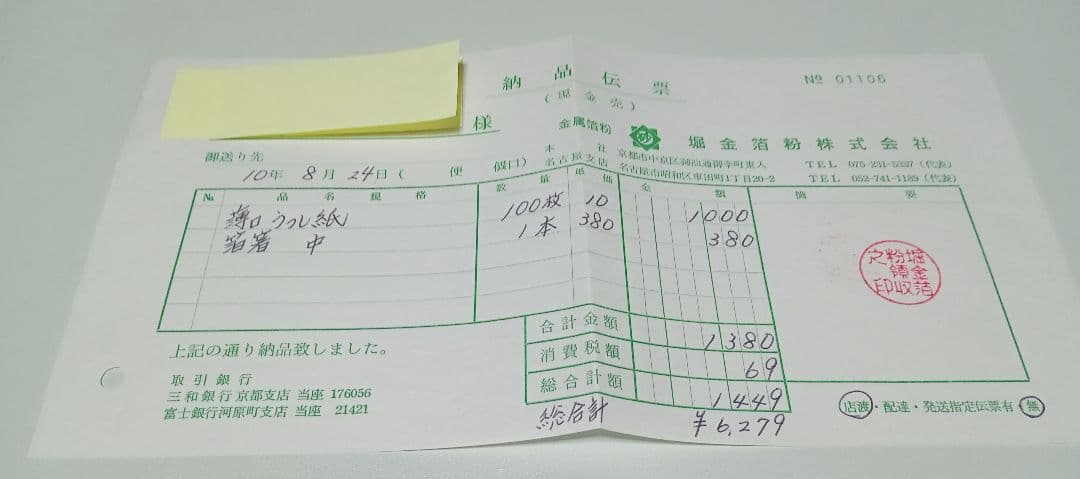 納品伝票
№ 01106
(現金売)
様
金属箔粉 堀金箔粉株式会社
本社 京都市中京区御池通御幸町東入 TEL 075-231-5337 (代表)
名古屋支店 名古屋市昭和区車田町1丁目20-2 TEL 052-741-1189 (代表)
御送り先
10年 8月 24日 ( 便 個口)
№ 品名 規格 数量 単価 金額 摘要
薄口うつし紙 100枚 10 1000
箔箸 中 1本 380 380
堀金箔粉之領収印
合計金額 1380
消費税額 69
総合計額 1449
総合計 ¥6,279
上記の通り納品致しました。
取引銀行
三和銀行京都支店 当座 176056
富士銀行河原町支店 当座 21421
店渡・配達・発送指定伝票有・無